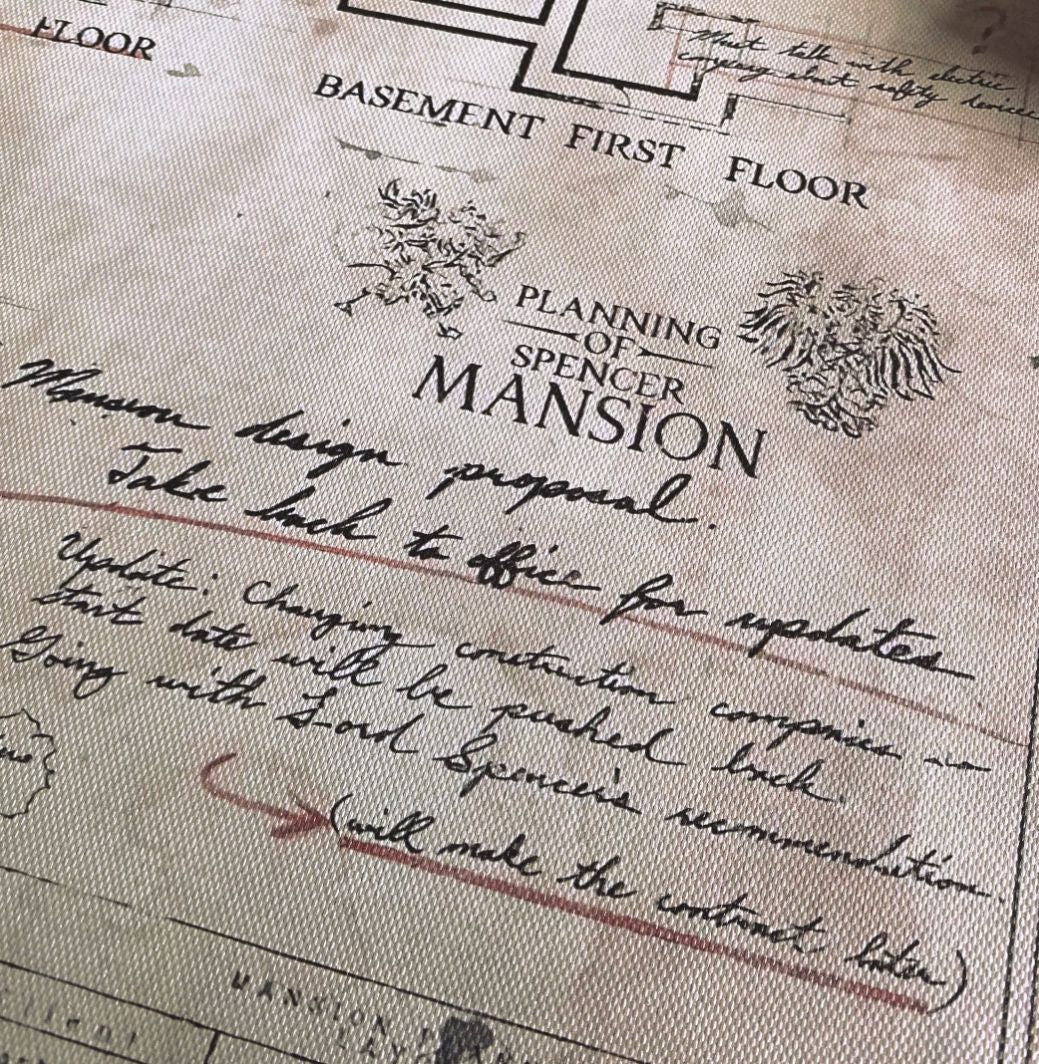 FLOOR
Must talk with electric
company about safety devices
?
BASEMENT FIRST FLOOR
PLANNING
OF
SPENCER
MANSION
Mansion design proposal.
Take back to office for updates
Update: Changing construction companies so
start date will be pushed back.
Going with Lord Spencer's recommendation.
(will make the contract later)
MANSION